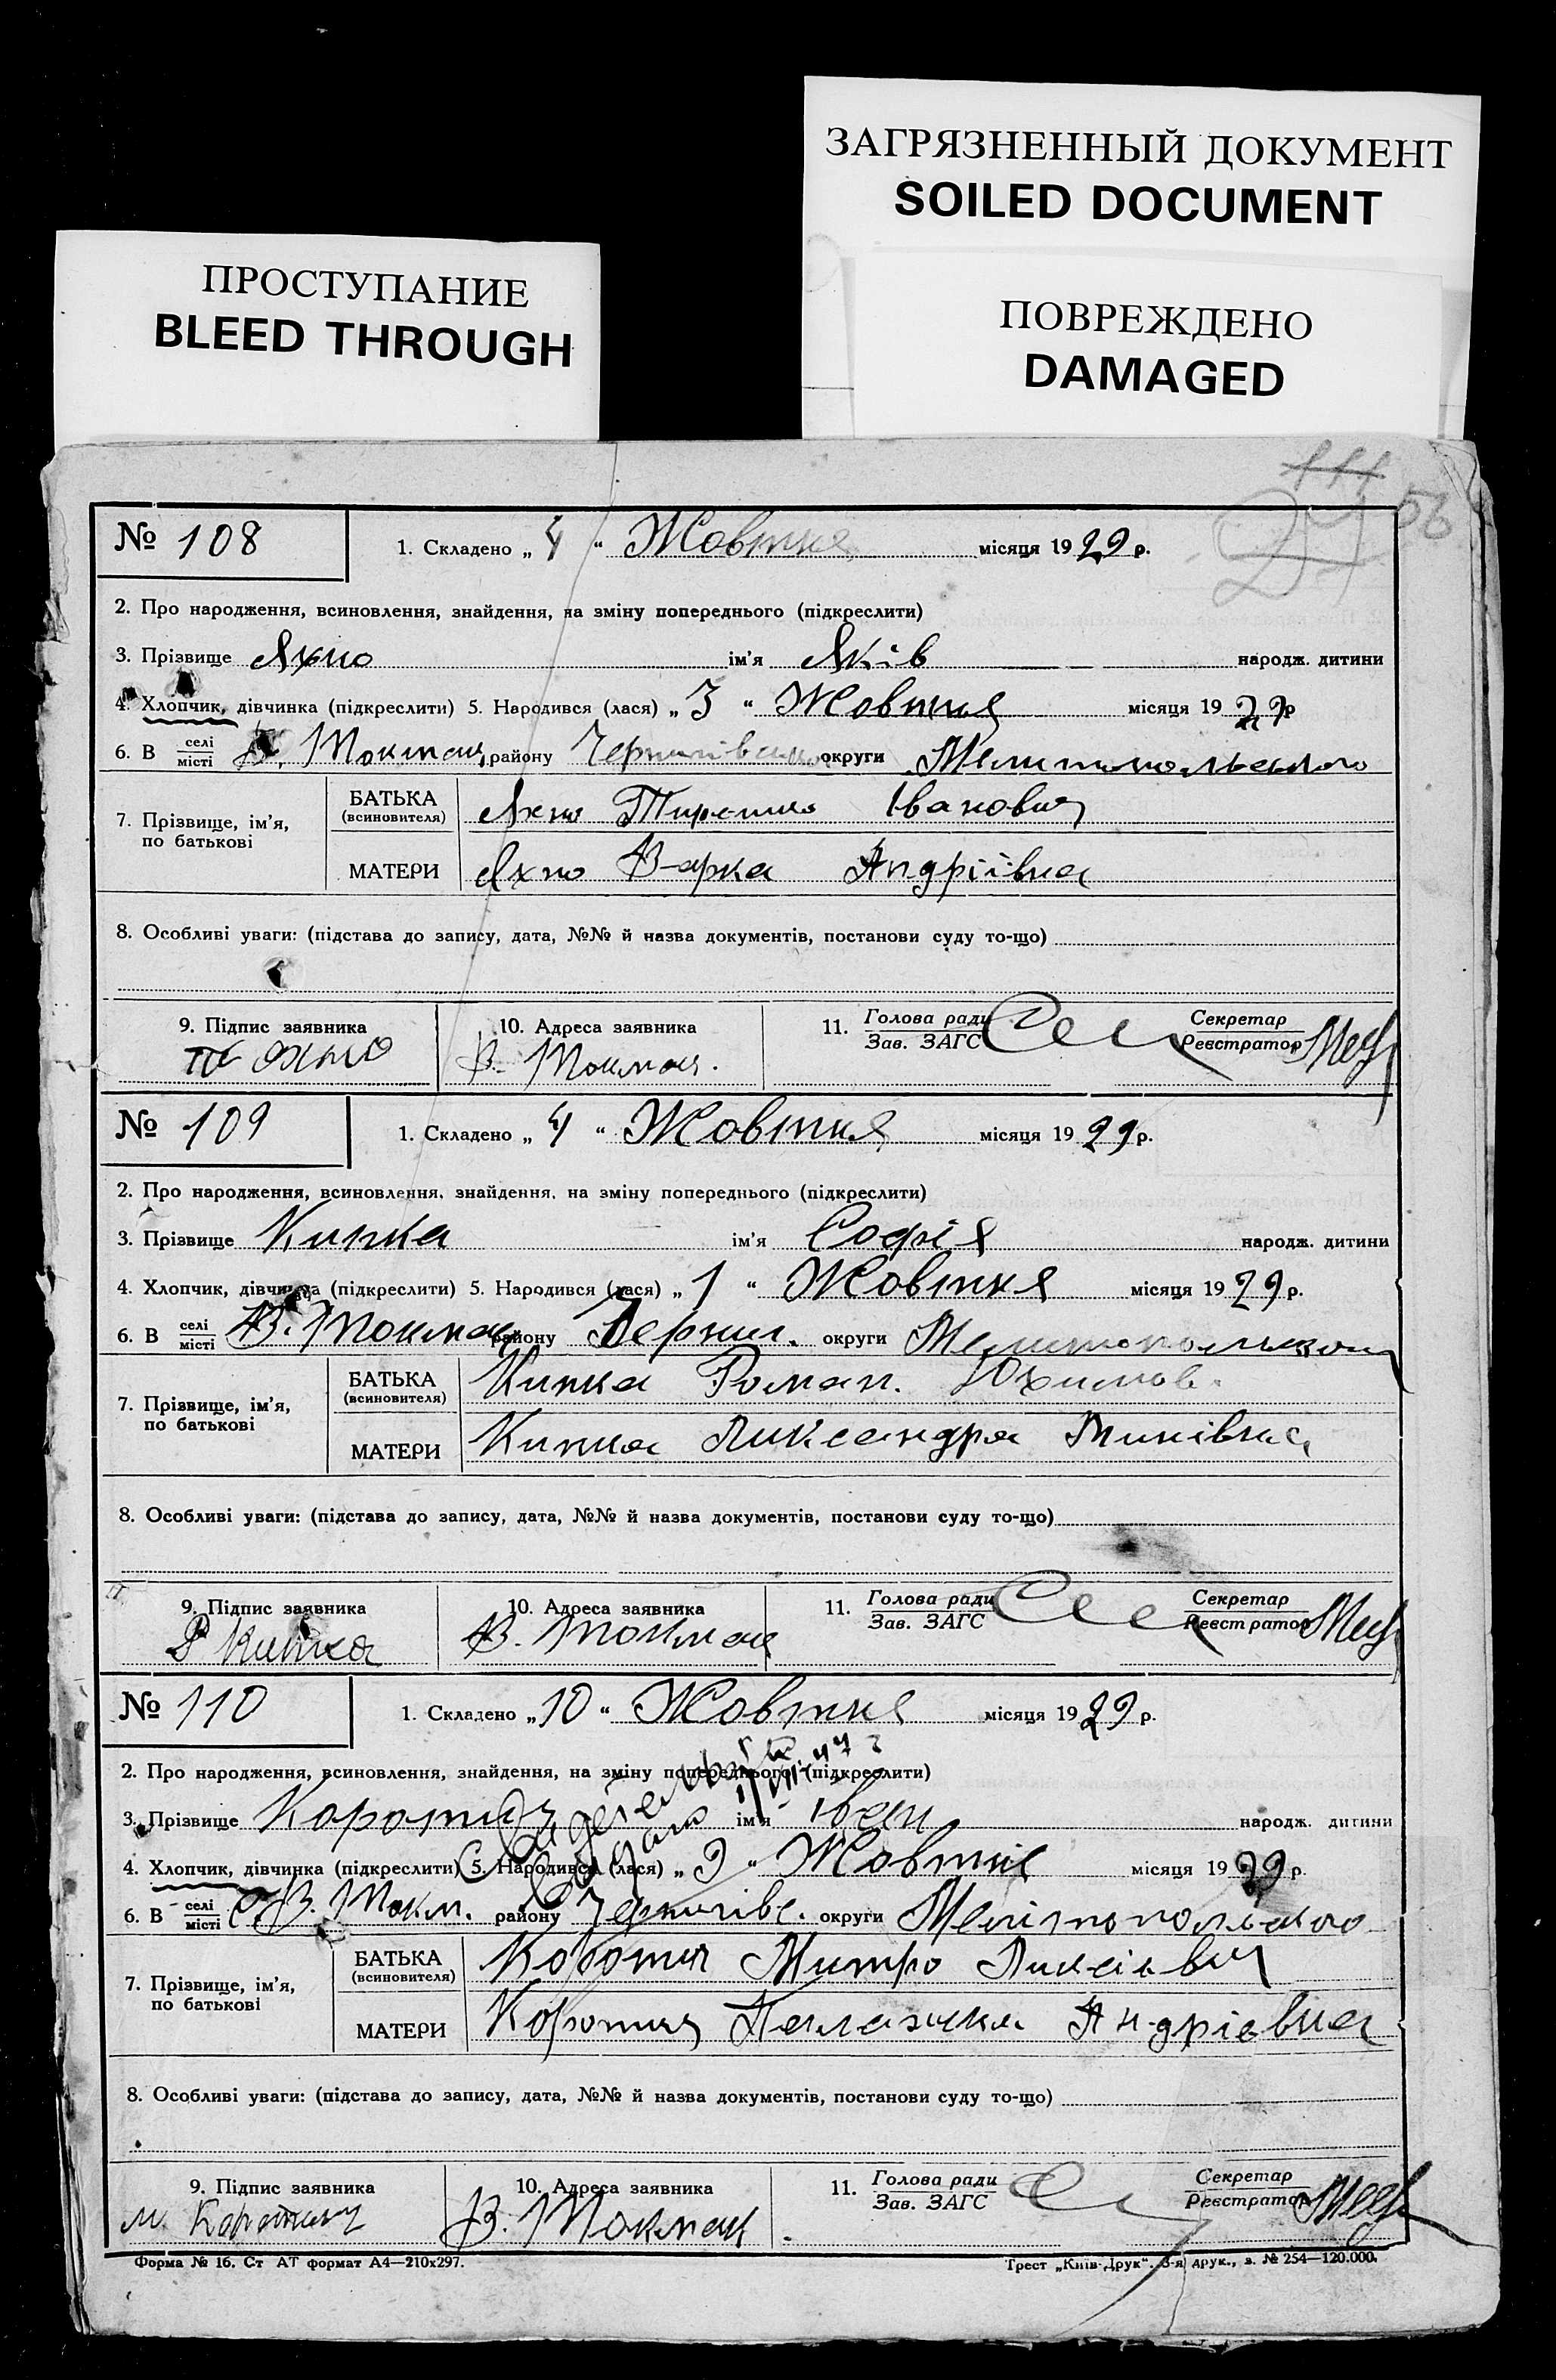 ЗАГРЯЗНЕННЫЙ ДОКУМЕНТ
SOILED DOCUMENT
ПРОСТУПАНИЕ
BLEED THROUGH
ПОВРЕЖДЕНО
DAMAGED
111
56
№ 108 1. Складено „ 4 “ Жовтня місяця 1929 р.
2. Про народження, всиновлення, знайдення, на зміну попереднього (підкреслити)
3. Прізвище Яхно ім'я Яків народж. дитини
4. Хлопчик, дівчинка (підкреслити) 5. Народився (лася) „ 3 “ Жовтня місяця 1929 р
6. В селі місті В. Токмак району Чернигівськ округи Мелитопольського
7. Прізвище, ім'я, по батькові БАТЬКА (всиновителя) Яхно Іванович
МАТЕРИ Яхно Варка Андріївна
8. Особливі уваги: (підстава до запису, дата, №№ й назва документів, постанови суду то-що)
9. Підпис заявника Яхно 10. Адреса заявника В. Токмак. 11. Голова ради Зав. ЗАГС Секретар Реєстратор
№ 109 1. Складено „ 4 “ Жовтня місяця 1929 р.
2. Про народження, всиновлення, знайдення, на зміну попереднього (підкреслити)
3. Прізвище Кипка ім'я Софія народж. дитини
4. Хлопчик, дівчинка (підкреслити) 5. Народився (лася) „ 1 “ Жовтня місяця 1929 р.
6. В селі місті В. Токмак району Черниг. округи Мелитопольського
7. Прізвище, ім'я, по батькові БАТЬКА (всиновителя) Кипка Роман. Юхимов.
МАТЕРИ Кипка Ликсандра Минівна
8. Особливі уваги: (підстава до запису, дата, №№ й назва документів, постанови суду то-що)
9. Підпис заявника Р Кипка 10. Адреса заявника В. Токмак 11. Голова ради Зав. ЗАГС Секретар Реєстратор
№ 110 1. Складено „ 10 “ Жовтня місяця 1929 р.
2. Про народження, всиновлення, знайдення, на зміну попереднього (підкреслити)
3. Прізвище Коротич ім'я Іван народж. дитини
4. Хлопчик, дівчинка (підкреслити) 5. Народився (лася) „ 9 “ Жовтня місяця 1929 р.
6. В селі місті В. Токм. району Чернигівс. округи Мелітопольского
7. Прізвище, ім'я, по батькові БАТЬКА (всиновителя) Коротич Митро Ликсієвич
МАТЕРИ Коротич Палажка Андрієвна
8. Особливі уваги: (підстава до запису, дата, №№ й назва документів, постанови суду то-що)
9. Підпис заявника М. Коротич 10. Адреса заявника В. Токмак 11. Голова ради Зав. ЗАГС Секретар Реєстратор
Форма № 16. Ст АТ формат А4—210х297. Трест „Київ-Друк“. 3-я друк., з. № 254—120.000.